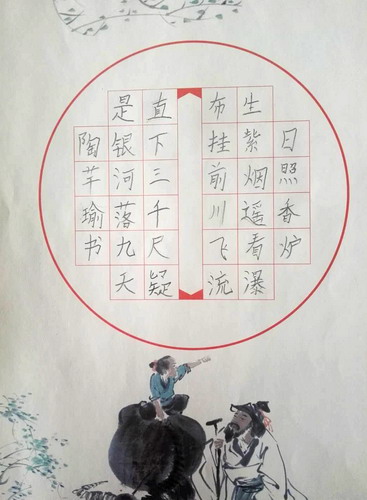 日照香炉
生紫烟遥看瀑
布挂前川飞流
直下三千尺疑
是银河落九天
陶芊瑜书